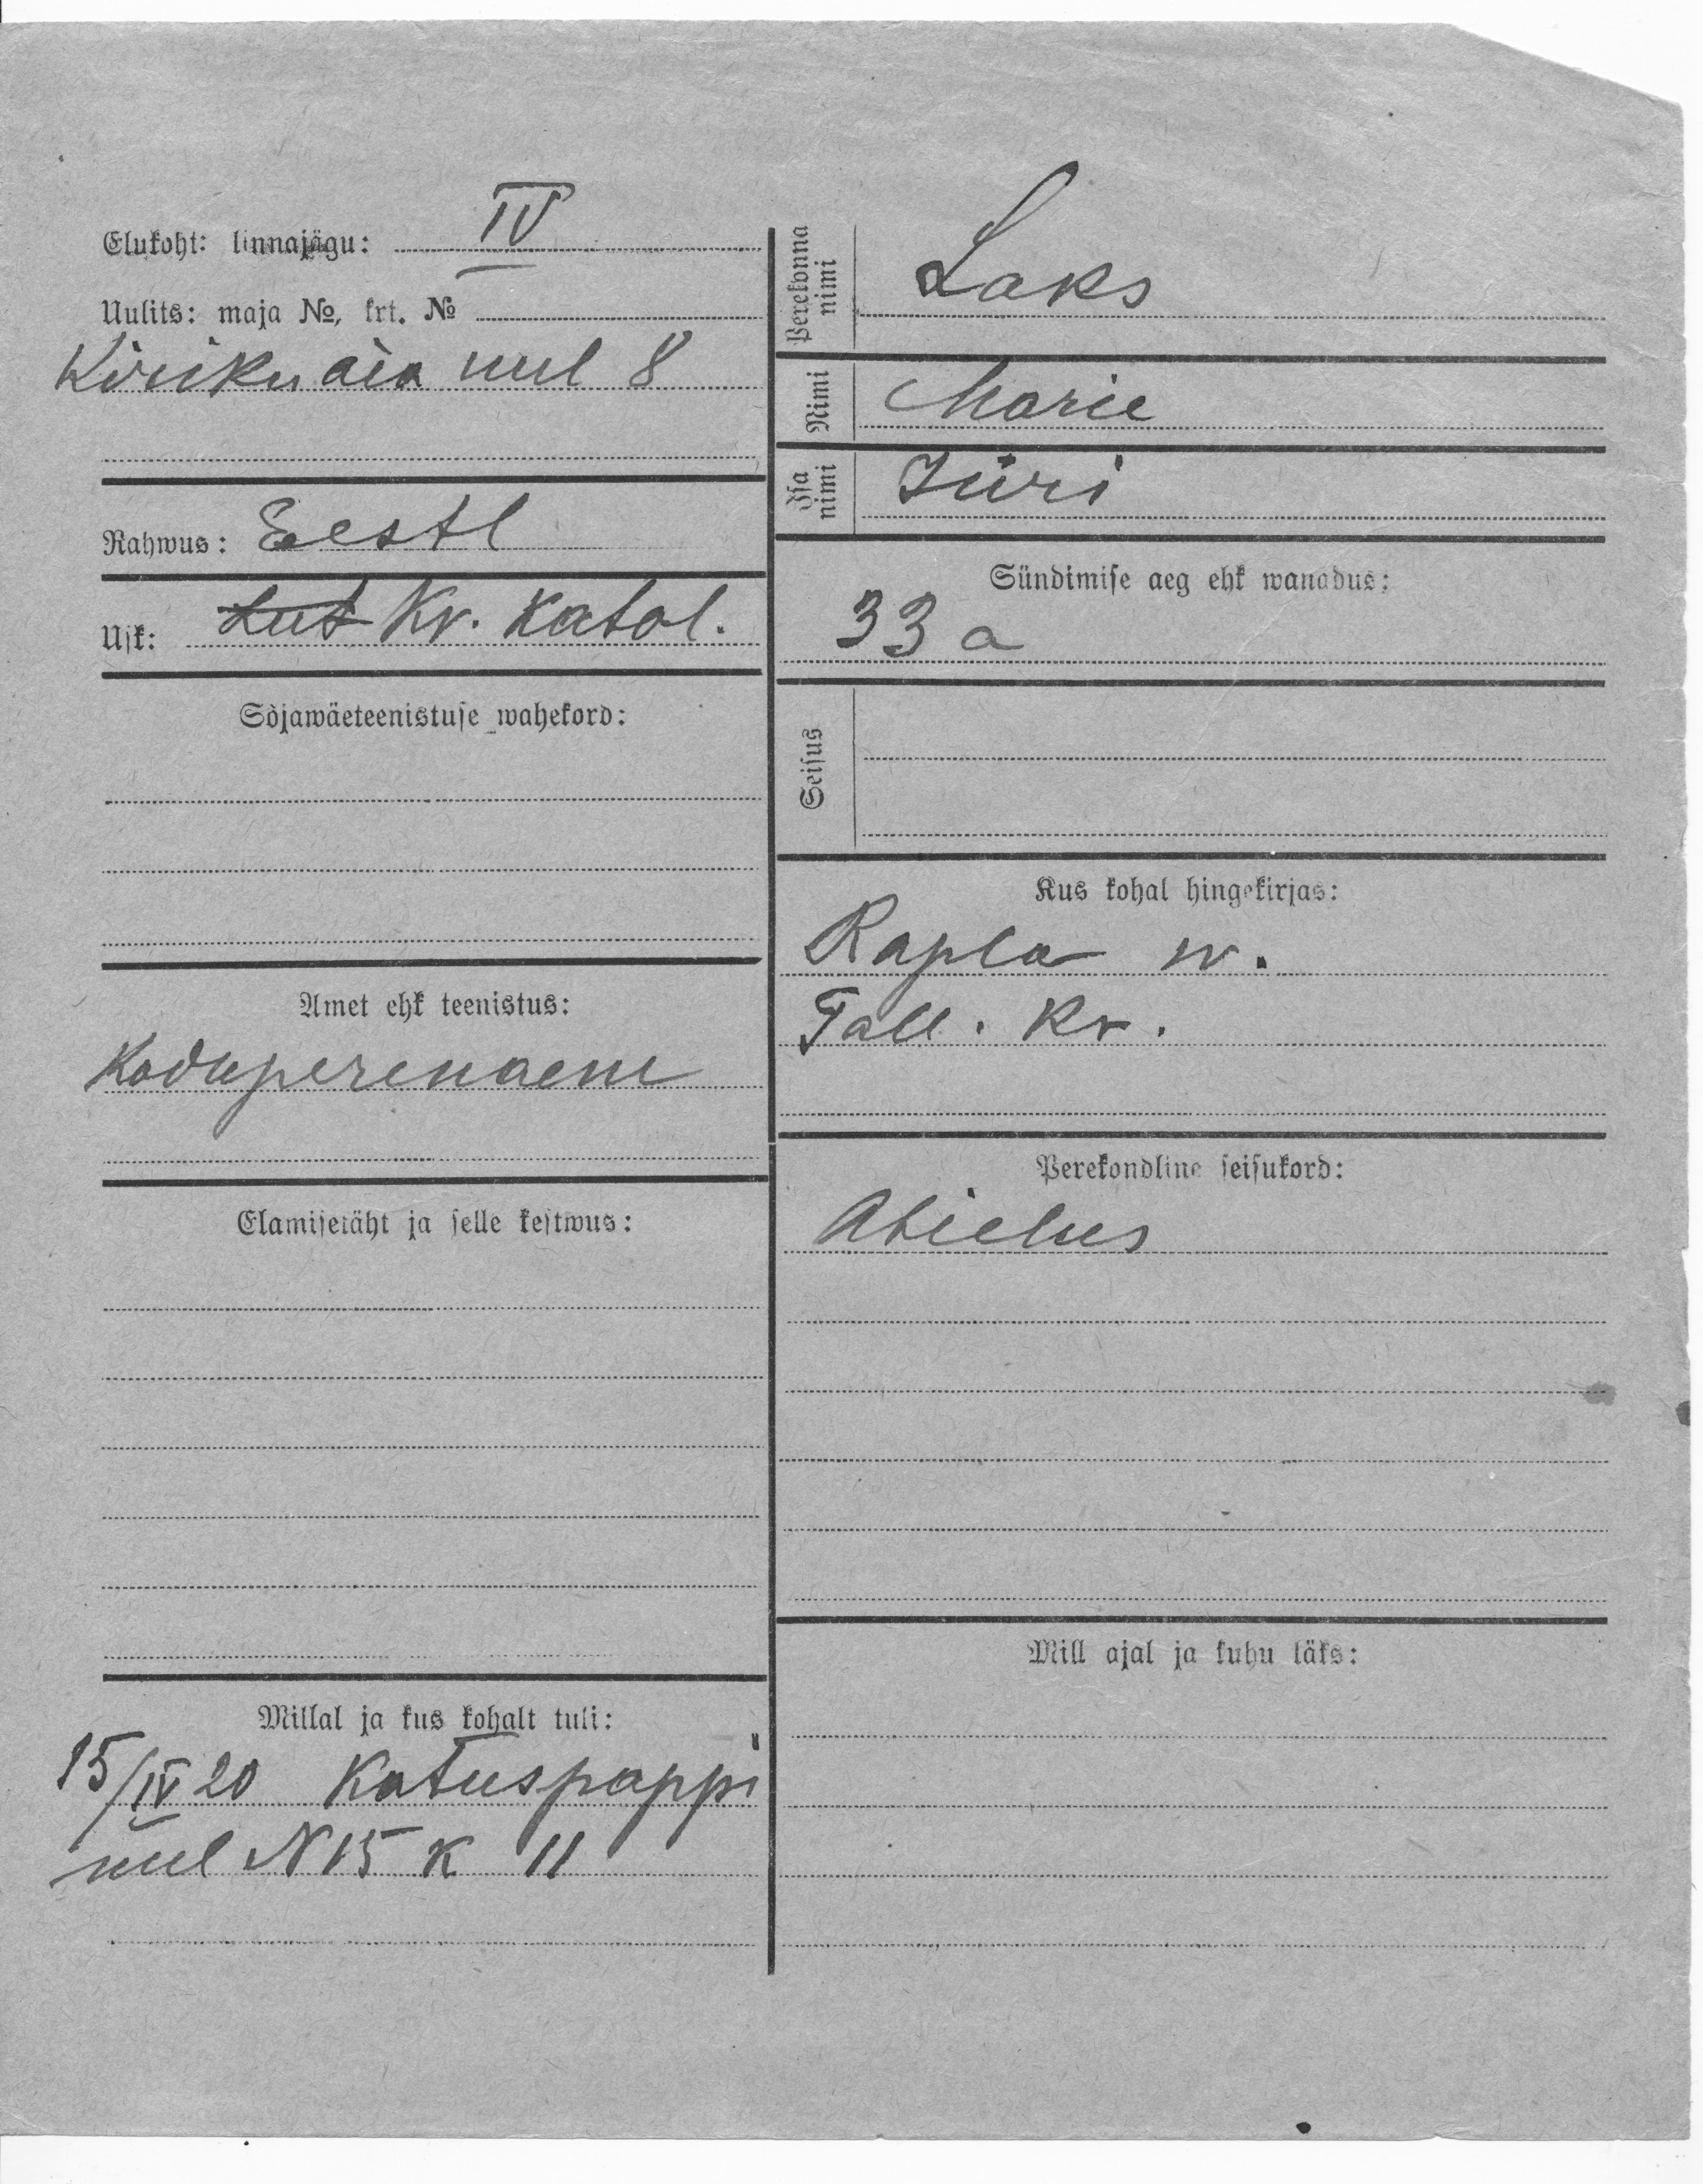 Elukoht: linnajägu: IV
Uulits: maja №, krt. №
Kiriku aia uul 8
Rahwus: Eestl
Usk: Lut Kr. Katol.
Sõjawäeteenistuse wahekord:
Amet ehk teenistus:
Koduperenaene
Elamisetäht ja selle kestwus:
Millal ja kus kohalt tuli:
15/IV 20 Katuspappi
uul N 15 K 11
Perekonna
nimi
Laks
Nimi Marie
Isa
nimi
Jüri
Sündimise aeg ehk wanadus:
33 a
Seisus
Kus kohal hingekirjas:
Rapla w.
Tall. Kr.
Perekondline seisukord:
Abielus
Mill ajal ja kuhu läks: